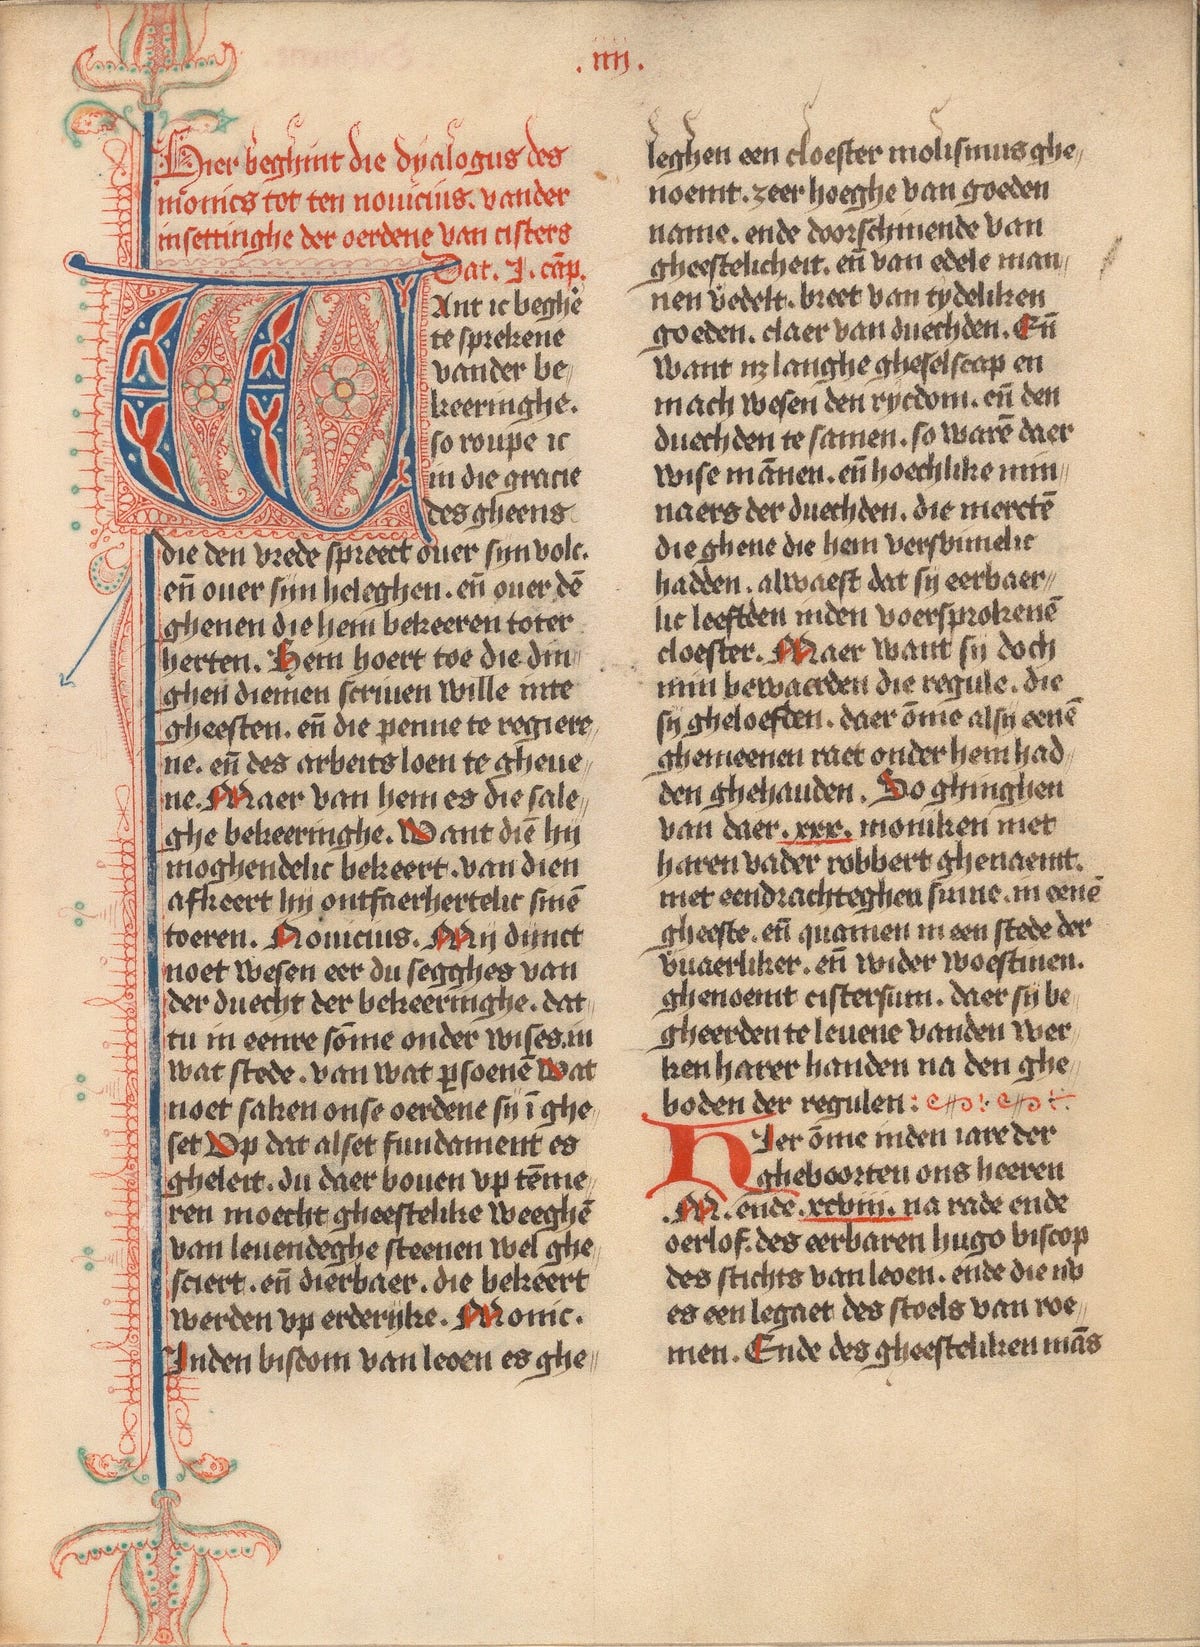 .iiii.
Hier beghint die dyalogus des
monics tot ten nouicius. vander
insettinghe der oerdene van cisters
Dat. I. cāp.
Want ic beghē
te sprekene
vander be„
keeringhe.
so roupe ic
in die gracie
des gheens
die den vrede spreect ouer sijn volc.
en̄ ouer sijn heleghen. en̄ ouer dē
ghenen die hem bekeeren toter
herten. Hem hoert toe die din„
ghen diemen scriuen wille inte
gheesten. en̄ die penne te regiere„
ne. en̄ des arbeits loen te gheue„
ne. Maer van hem es die sale„
ghe bekeeringhe. Want diē hij
moghendelic bekeert. van dien
afkeert hij ontfaerhertelic sinē
toeren. Nouicius. Mij dinct
noet wesen eer du segghes van
der duecht der bekeeringhe. dat„
tu in eenre sōme onder wises. in
wat stede. van wat psoenē Wat
noet saken onse oerdene sij ī ghe„
set Op dat alset fundament es
gheleit. du daer bouen vp tēme„
ren moecht gheestelike weeghē
van leuendeghe steenen wel ghe„
sciert. en̄ dierbaer. die bekeert
werden vp erderijke. Monic.
Inden biscom van leoen es ghe„
leghen een cloester molismus ghe„
noemt. zeer hoeghe van goeden
name. ende doorschinende van
gheestelicheit. en̄ van edele man„
nen v̄edelt. breet van tydeliken
goeden. claer van duechden. En̄
want nz langhe gheselscap en
mach wesen den rycdom. en̄ den
duechden te samen. so warē daer
wise mānen. en̄ hoechlike min„
naers der duechden. die mercte̅
die ghene die hem versumelic
hadden. alwaest dat sij eerbaer„
lic leefden inden voersprokenē
cloester. Maer want sij doch
min bewaerden die regule. die
sij gheloefden. daer ōme alsij eenē
ghemeenen raet onder hem had„
den ghehauden. So ghinghen
van daer. xxx. moniken met
haren vader robbert ghenaemt.
met eendrachteghen sinne. in eenē
gheeste. en̄ quamen in een stede der
v̄uaerliker. en̄ wider woestinen.
ghenoemt cistersum. daer sij be„
gheerden te leuene vanden wer„
ken harer handen na den ghe„
boden der regulen:
Hier ōme inden iare der
gheboorten ons heeren
.M. ende. xcviii. na rade ende
oerlof. des eerbaren hugo biscop
des stichts van leoen. ende die nv
es een legaet des stoels van roe„
men. Ende des gheesteliken mās